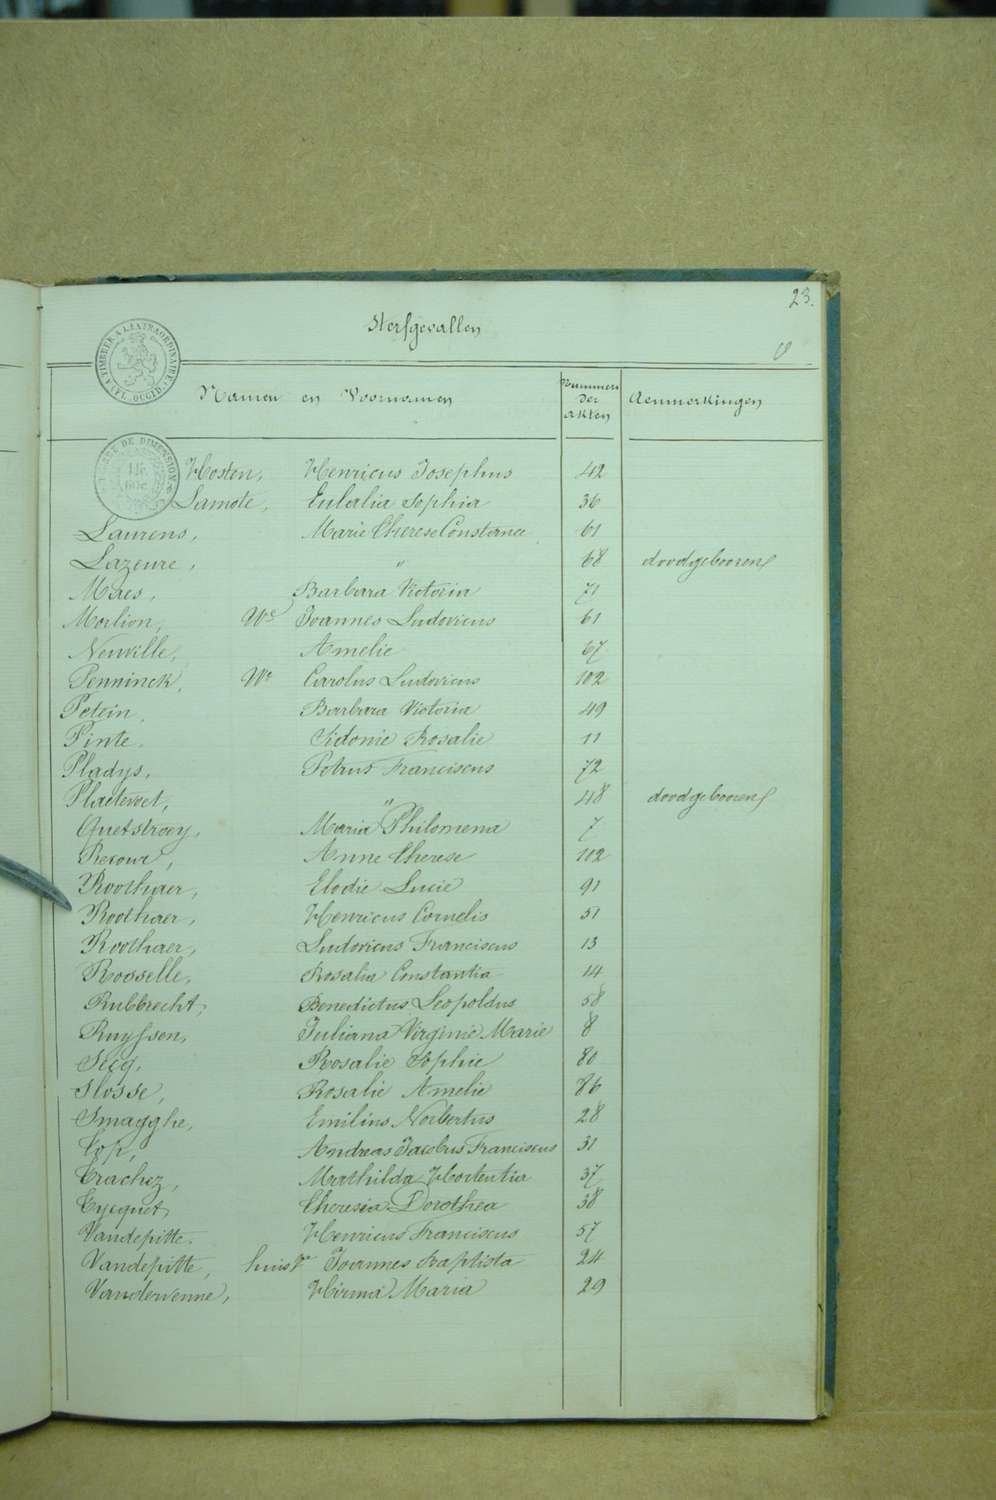 23.
Sterfgevallen
Namen en Voornamen
Nummers der akten
Aenmerkingen
Hosten, Henricus Josephus 42
Lamote, Eulalia Sophia 36
Laurens, Marie Therese Constance 61
Lazeure, " 68 doodgeboren
Maes, Barbara Victoria 71
Morlion, We Joannes Ludovicus 61
Neuville, Amelie 67
Penninck, We Carolus Ludovicus 102
Petein, Barbara Victoria 49
Pinte, Sidonie Rosalie 11
Pladys, Petrus Franciscus 72
Plaetevoet, " 48 doodgeboren
Quetstroey, Maria Philomena 7
Recour, Anne Therese 112
Roothaer, Elodie Lucie 91
Roothaer, Henricus Cornelis 51
Roothaer, Ludovicus Franciscus 13
Rosselle, Rosalia Constantia 14
Rubbrecht, Benedictus Leopoldus 58
Ruyssen, Juliana Virginie Marie 8
Secq, Rosalie Sophie 80
Slosse, Rosalie Amelie 86
Smagghe, Emilius Norbertus 28
Top, Andreas Jacobus Franciscus 31
Trachez, Mathilda Hortentia 37
Tycquet Theresia Dorothea 38
Vandepitte, Henricus Franciscus 57
Vandepitte, huisv Joannes Baptista 24
Vandervenne, Hirma Maria 29